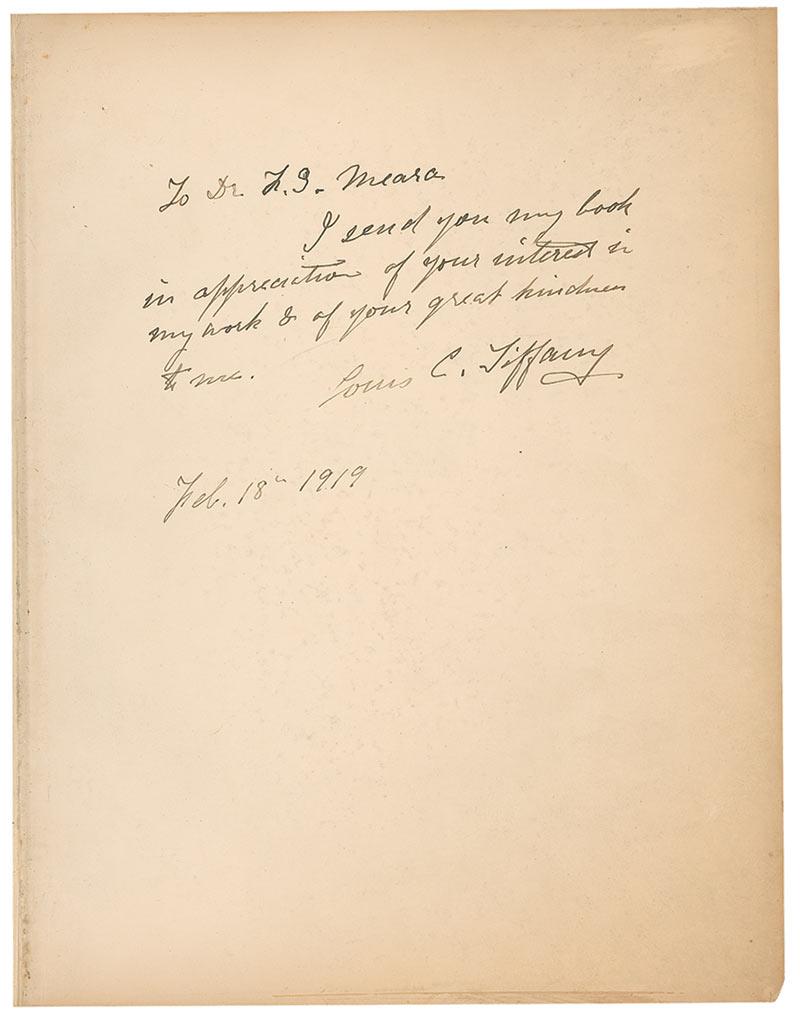 To Dr. F. S. Meara
I send you my book
in appreciation of your interest in
my work & of your great kindness
to me. Louis C. Tiffany
Feb. 18th 1919